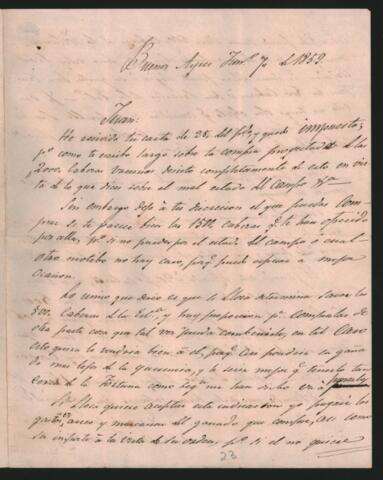 Buenos Ayres Jun.º 7 de 1859
Juan:
He recivido tu carta de 28 del pp.do y quedo impuesto;
p.º como te escribo largo sobre la compra proyectada de las
2000. Cabezas Vacunas desisto completamente de esto en vis-
ta de lo que dices sobre el mal estado del Campo &.ª
Sin embargo dejo a tu discrecion el que puedas Com-
prar si te parece bien las 1500 cabezas q.e te han ofrecido
por alla, p.º si no puede por el estado del campo o cual
otro motibo no hay caso, porq.e puede esperar a mejor
ocacion.
Lo unico que deceo es que si Llosa determina sacar las
500. Cabezas de la Est.ª y hay proporcion p.ª Comprarlas de
otra parte cosa que tal vez pueda combenirle, en tal Caso
esto quiza le vendria bien a el, porq.e asi pondria su ganado
mas lejos de la querencia, y le seria mejor q.e tenerlo tan
cerca de la
como seg.n me han dicho era
Si Llosa quiere aceptar esta indicacion yo pagaré los
gastos, arreo y marcacion del ganado que compre, asi como
su importe a la vista de su orden, p.º si el no quiere
23